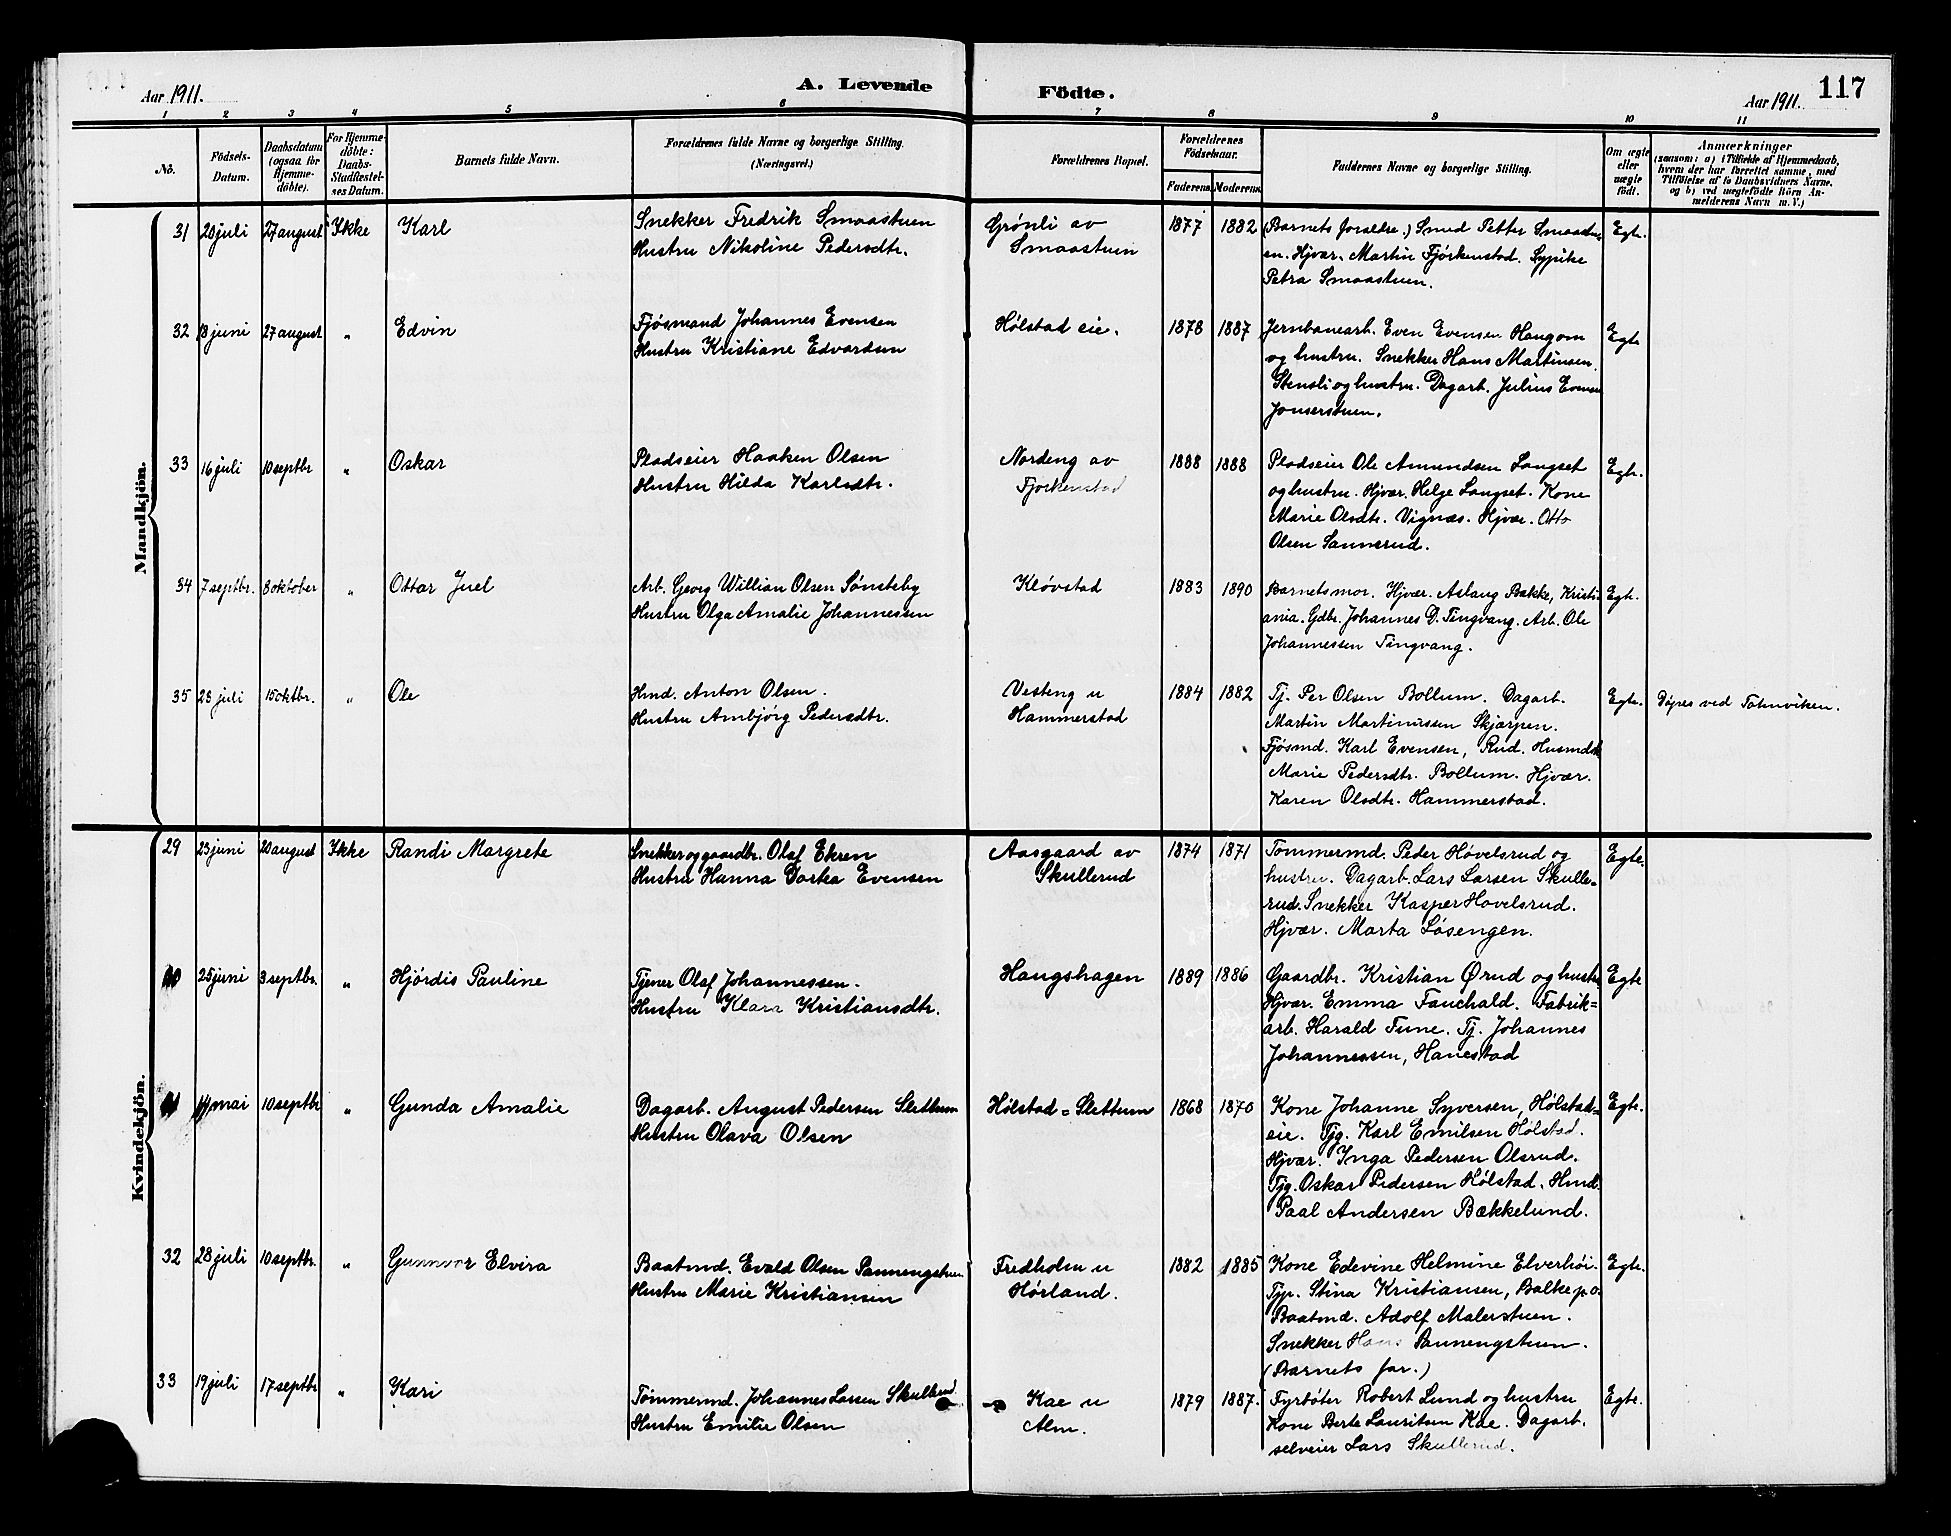 Aar 1911.
A. Levende
Födte.
Aar 1911.
117
1 2 3 4 5 6 7 8 9 10 11
No.
Födsels-Datum.
Daabsdatum (ogsaa for Hjemme-döbte).
For Hjemme-döbte: Daabs-Stadfæstel-ses Datum.
Barnets fulde Navn.
Forældrenes fulde Navne og borgerlige Stilling.
(Næringsvei.)
Forældrenes Bopæl.
Forældrenes Födselsaar.
Faderens. Moderens.
Faddernes Navne og borgerlige Stilling.
Om ægte eller uægte födt.
Anmærkninger
(saasom: a) i Tilfælde af Hjemmedaab,
hvem der har forrettet samme, med
Tilföielse af to Daabsvidners Navne,
og b) ved uægtefödte Börn An-
melderens Navn m. V.)
Mandkjön.
31 20 juli 27 august Ikke Karl
Snekker Fredrik Smaastuen
Hustru Nikoline Pedersdtr.
Grønli av
Smaastuen
1877 1882
(Barnets foraldre.) Smed Petter Smaastu-
en. Hjvær. Martin Fjørkenstad. Sypike
Petra Smaastuen.
Egte.
32 13 juni 27 august " Edvin
Fjøsmand Johannes Evensen
Hustru Kristiane Edvardsen
Hølstad eie.
1878 1887
Jernbanearb. Even Evensen Haugom
og hustru. Snekker Hans Martinsen
Stensli og hustru. Dagarb. Julius Evensen
Jonserstuen.
Egte
33 16 juli 10 septbr " Oskar
Pladseier Haaken Olsen
Hustru Hilda Karlsdtr.
Nordeng av
Fjorkenstad
1888 1888
Pladseier Ole Amundsen Langset
og hustru. Hjvær. Helge Langset. Kone
Marie Olsdtr. Vignæs. Hjvær. Otto
Olsen Sannerud.
Egte.
34 7 septbr. 8 oktober " Ottar Juel
Arb. Georg Willian Olsen Sønsteby
Hustru Olga Amalie Johannessen
Kløvstad
1883 1890
Barnets mor. Hjvær. Aslaug Bakke, Kristi-
ania. Gdbr. Johannes D. Tingvang. Arb. Ole
Johannessen Tingvang.
Egte.
35 23 juli 15 oktbr. " Ole
Hmd. Anton Olsen.
Hustru Ambjørg Pedersdtr.
Vesteng u
Hammerstad
1884 1882
Tj. Per Olsen Bollum. Dagarb.
Martin Martinussen Skjærpen.
Fjøsmd. Karl Evensen, Rud. Husmdsk
Marie Pedersdtr. Bollum. Hjvær.
Karen Olsdtr. Hammerstad.
Egte.
Døpes ved Totenviken.
Kvindekjön.
29 23 juni 20 august Ikke Randi Margrete
Snekker og gaardbr. Olaf Ekren
Hustru Hanna Dorka Evensen
Aasgaard av
Skullerud
1874 1871
Tømmermd. Peder Høvelsrud og
hustru. Dagarb. Lars Larsen Skulle-
rud. Snekker Kasper Hovelsrud.
Hjvær. Marta Løsengen.
Egte.
25 juni 3 septbr. " Hjørdis Pauline
Tjener Olaf Johannessen.
Hustru Klara Kristiansdtr.
Haugshagen
1889 1886
Gaardbr. Kristian Ørud og hustru
Hjvær. Emma Fauchald. Fabrik-
arb. Harald Tune. Tj. Johannes
Johannessen, Hanestad
Egte
mai 10 septbr " Gunda Amalie
Dagarb. August Pedersen Slettum
Hustru Olava Olsen
Hølstad = Slettum
1868 1870
Kone Johanne Syversen, Hølstad-
eie. Tjg. Karl Emilsen Hølstad.
Hjvær. Inga Pedersen Olsrud.
Tjg. Oskar Pedersen Hølstad. Hmd.
Paal Andersen Bækkelund.
Egte.
32 28 juli 10 septbr. " Gunnvor Elvira
Baatmd. Evald Olsen Pannengstuen
Hustru Marie Kristiansen
Fredholm u
Hørland.
1882 1885
Kone Edevine Helmine Elverhøi.
Tjp. Stina Kristiansen, Balke p.o.
Baatmd. Adolf Malerstuen.
Snekker Hans Pannengstuen.
(Barnets far.)
Egte.
33 19 juli 17 septbr " Kari
Tømmermd. Johannes Larsen Skullerud
Hustru Emilie Olsen
Kae u
Alm.
1879 1887.
Fyrbøter Robert Lund og hustru
Kone Berte Lauritsen Kae. Dagarb.
selveier Lars Skullerud.
Egte.